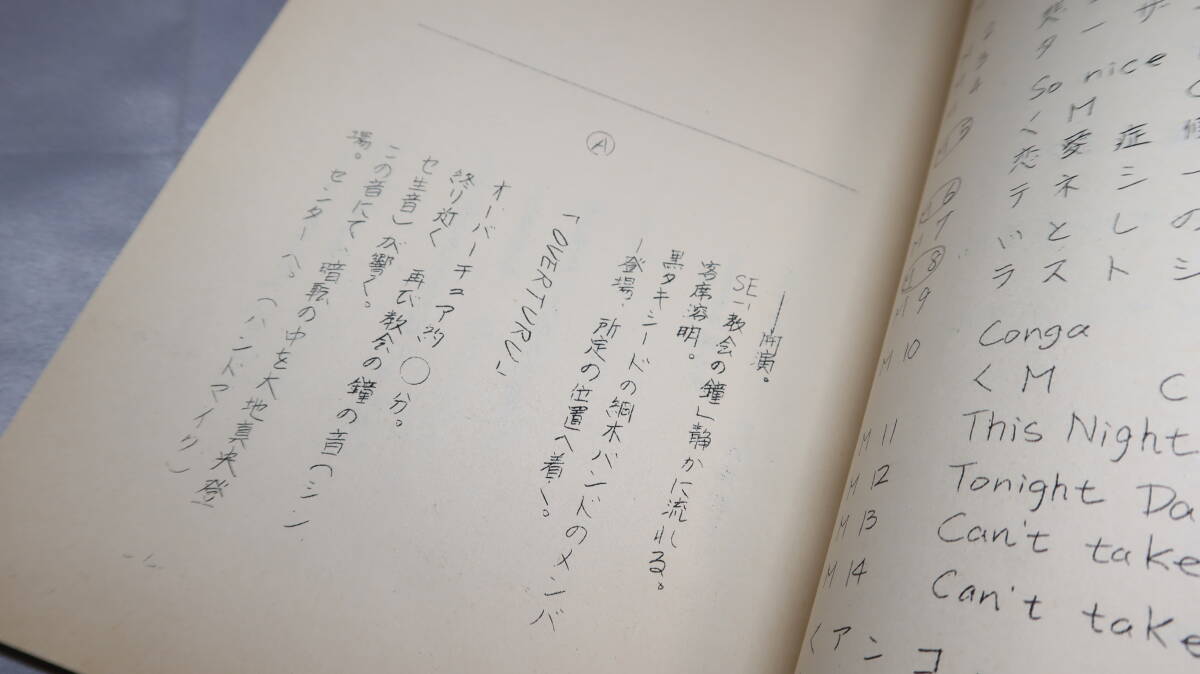 M 4 ターザ
M 5 So nice
〈 M C
M 6 恋愛症候
M 7 テネシー
M 8 いとしの
M 9 ラストシ
M 10 Conga
〈 M C
M 11 This Night
M 12 Tonight Da
M 13 Can't take
M 14 Can't take
〈アンコ
Ⓐ
――開演。
SE「教会の鐘」静かに流れ
客席溶明。
黒タキシードの綱木バンドのメンバ
ー登場、所定の位置へ着く。
「OVERTURE」
オーバーチュア約◯分。
終り近く 再び教会の鐘の音(シン
セ生音)が響く。
この音にて、暗転の中を大地真央登
場。センターへ。(ハンドマイク)